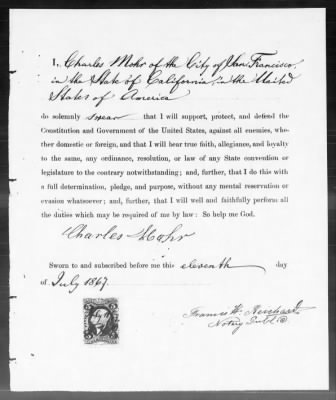 I, Charles Mohr of the City of San Francisco,
in the State of California, in the United
States of America
do solemnly swear that I will support, protect, and defend the
Constitution and Government of the United States, against all enemies,
whether domestic or foreign, and that I will bear true faith, allegiance, and loyalty
to the same, any ordinance, resolution, or law of any State convention or
legislature to the contrary notwithstanding; and, further, that I do this with
a full determination, pledge, and purpose, without any mental reservation or
evasion whatsoever; and, further, that I will well and faithfully perform all
the duties which may be required of me by law: So help me God.
Charles Mohr
Sworn to and subscribed before me this eleventh day
of July 1867.
Francis W.
Notary Public